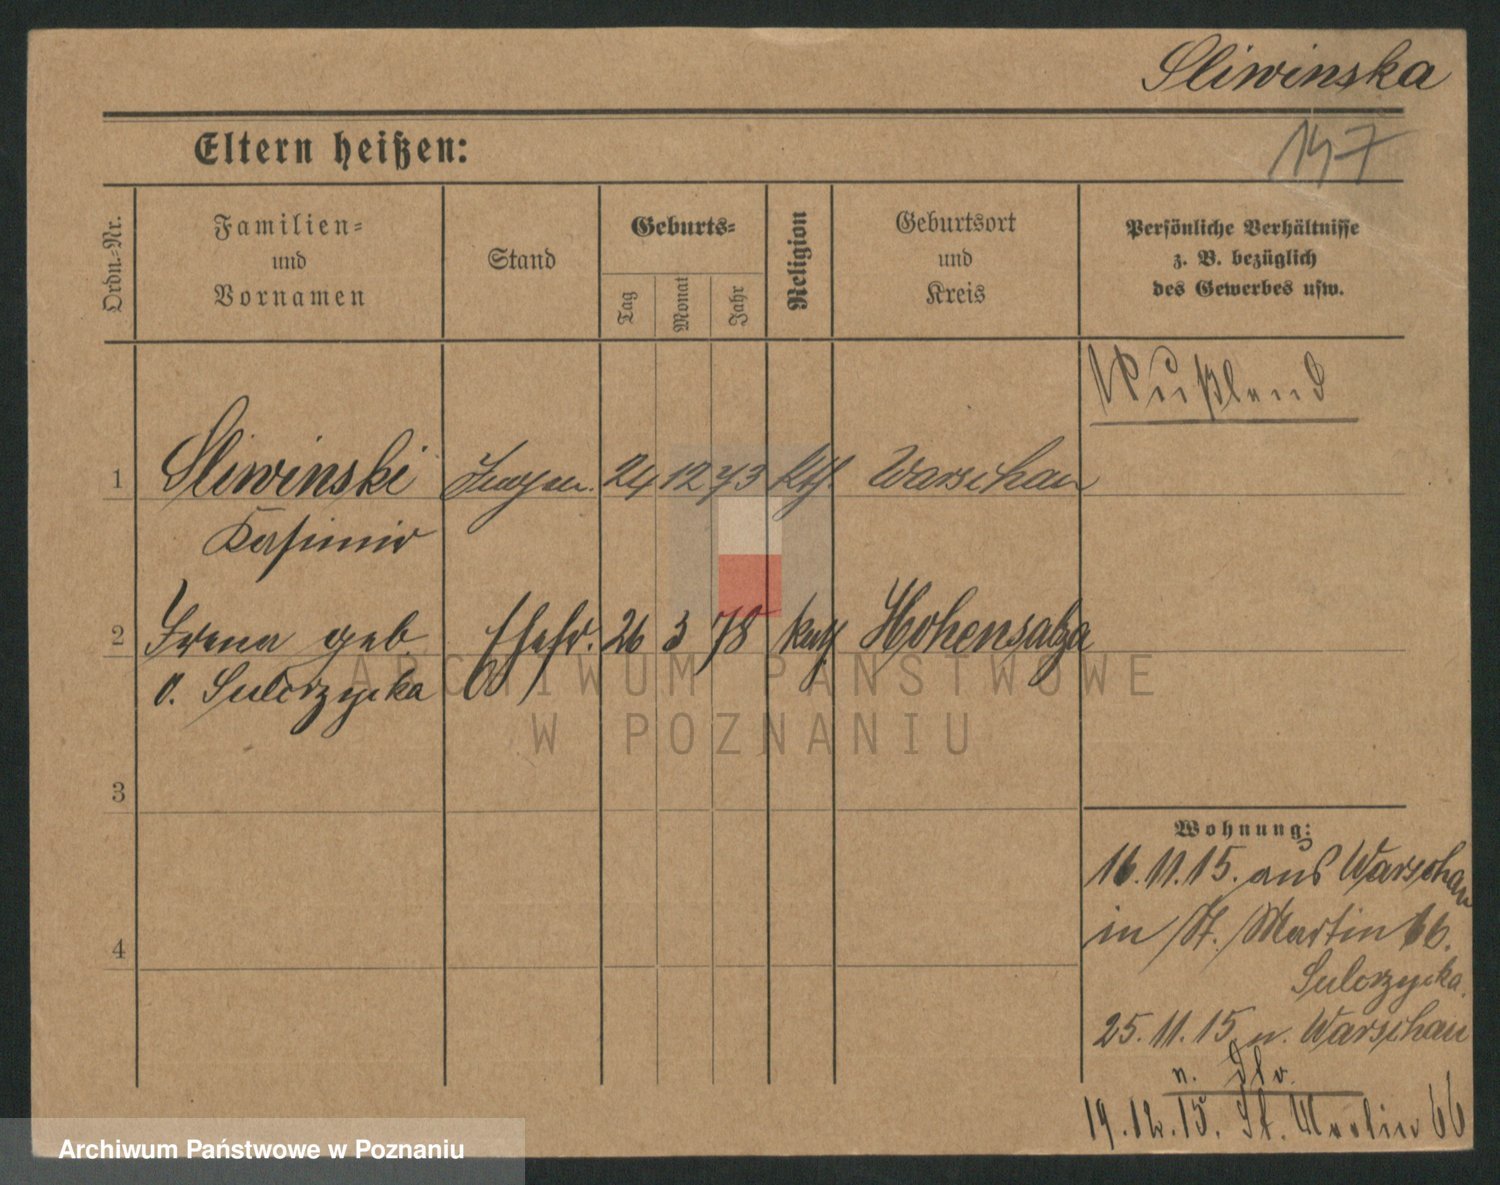 Sliwinska
147
Eltern heißen:
Ordn.-Nr.
Familien-
und
Vornamen
Stand
Geburts-
Tag
Monat
Jahr
Religion
Geburtsort
und
Kreis
Persönliche Verhältnisse
z. B. bezüglich
des Gewerbes usw.
Rußland
1 Sliwinski 24 12 73 kth. Warschau
Kasimir
2 Irena geb. Ehefr. 26 3 78 kath Hohensalza
v. Sulerzycka
3
4
Wohnung:
16.11.15. aus Warschau
in St. Martin 66.
Sulerzycka.
25.11.15. n. Warschau
19.12.15. St. Martin 66
ARCHIWUM PAŃSTWOWE
W POZNANIU
Archiwum Państwowe w Poznaniu